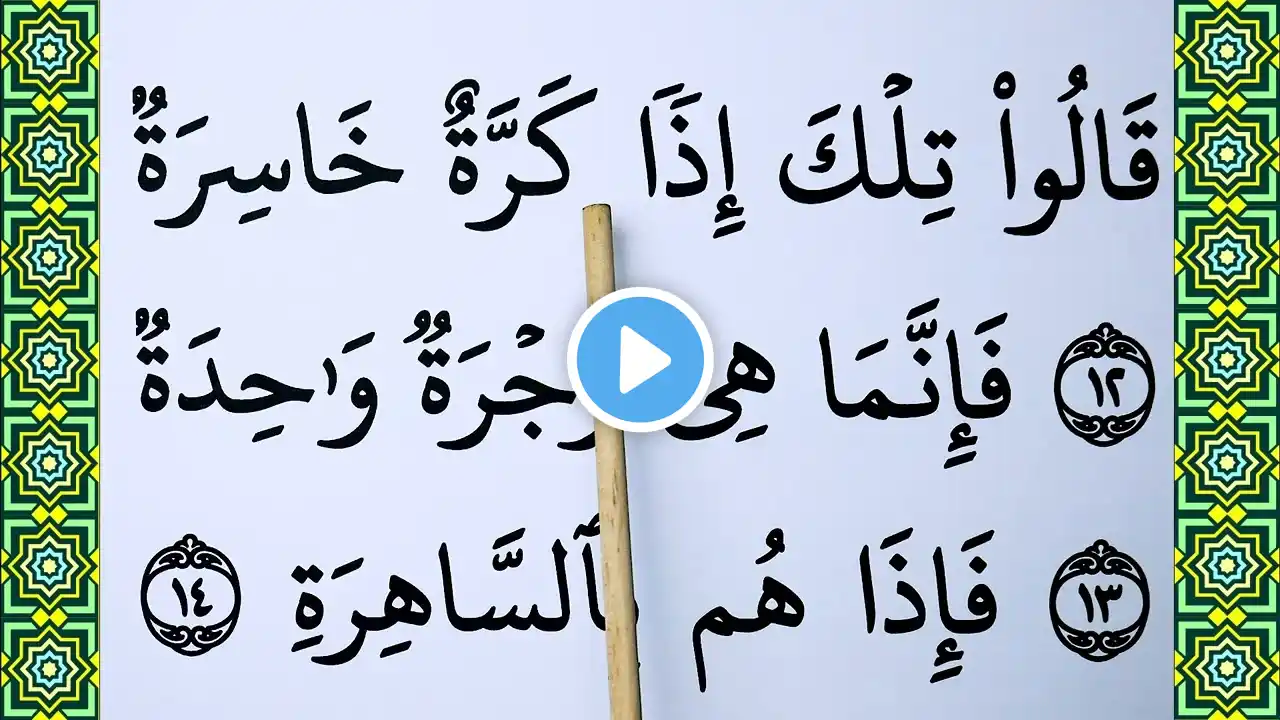 قَالُوا۟ تِلْكَ إِذًا كَرَّةٌ خَاسِرَةٌ
١٢ فَإِنَّمَا هِىَ زَجْرَةٌ وَٰحِدَةٌ
١٣ فَإِذَا هُم بِٱلسَّاهِرَةِ ١٤